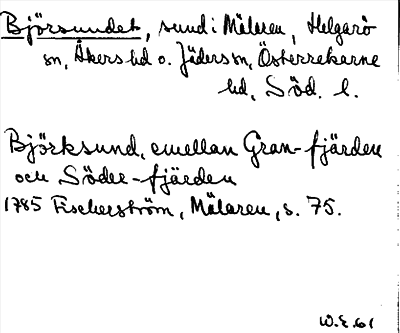 Björsundet, sund i Mälaren, Helgarö
sn, Åkers hd o. Jäders sn, Österrekarne
hd, Söd. l.
Björksund, emellan Gran-fjärden
och Söder-fjärden
1785 Fischerström, Mälaren, s. 75.
W.E.61